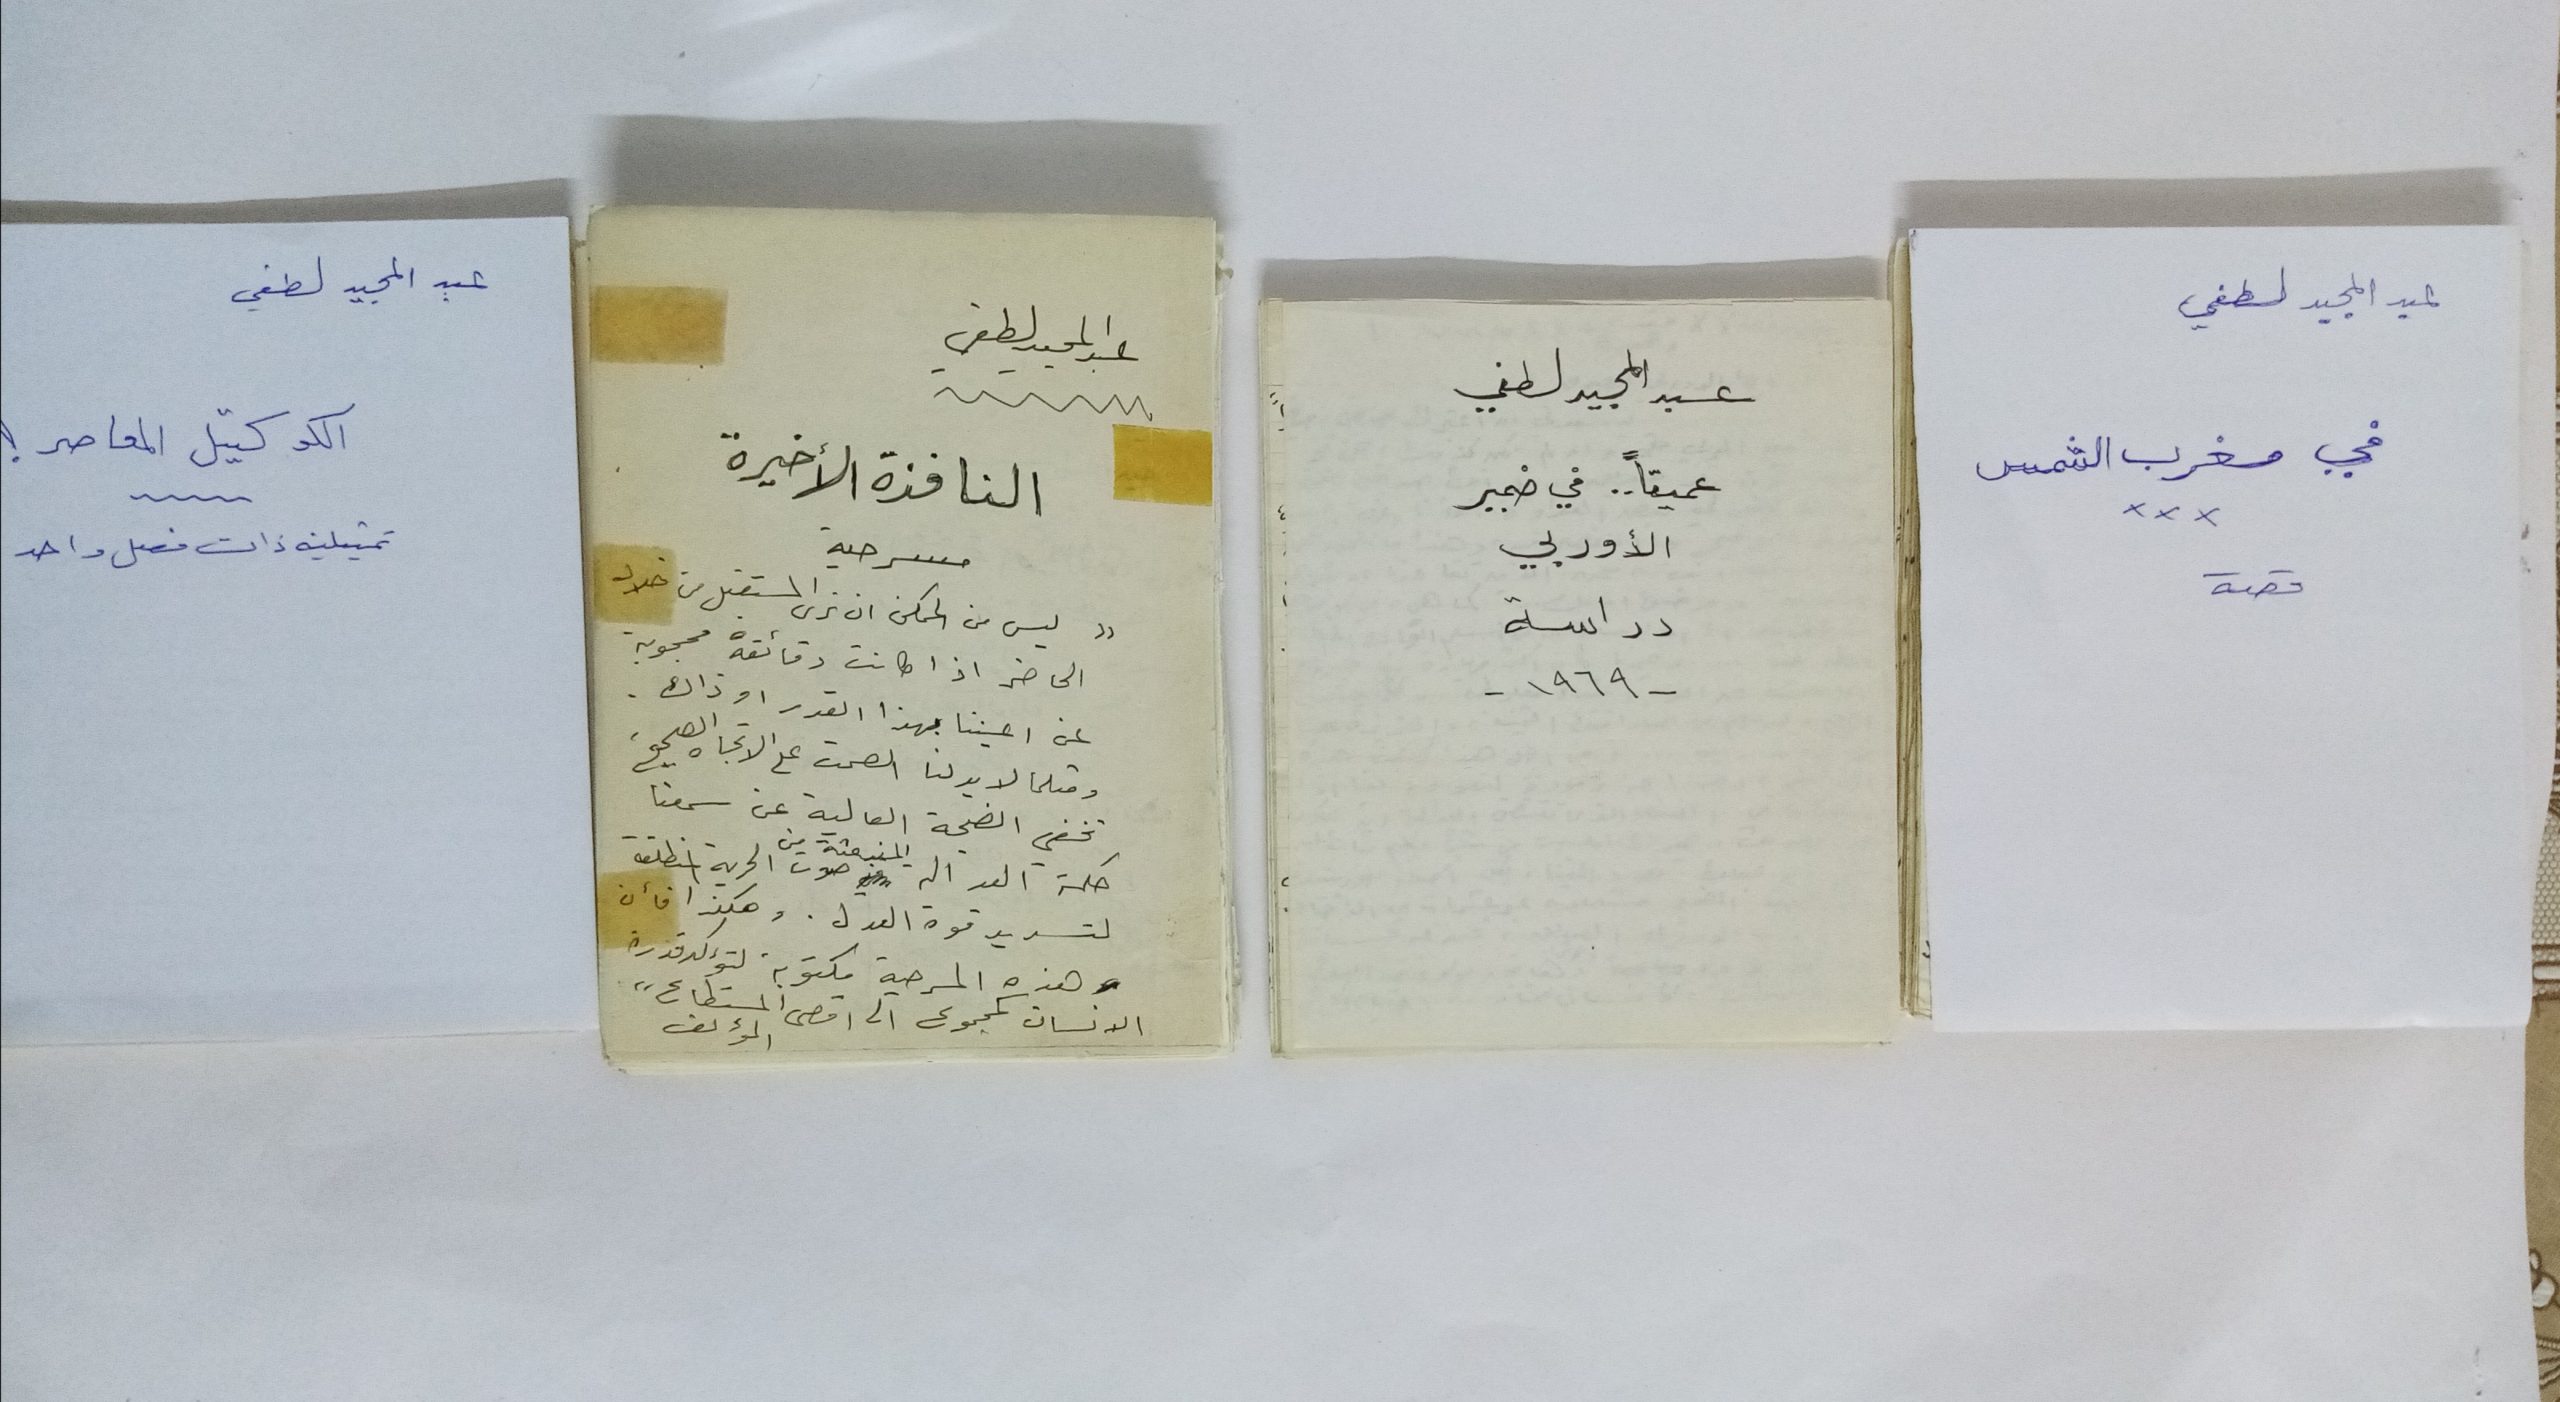 عبد المجيد لطفي
في مغرب الشمس
×××
قصة
عبد المجيد لطفي
عميقاً.. في ضمير
الأوربي
دراسة
- ١٩٦٩ -
عبد المجيد لطفي
النافذة الأخيرة
مسرحية
" ليس من الممكن ان نرى المستقبل من خلال
الحاضر اذا كانت دقائقه محجوبة
عن اعيننا بهذا القدر او ذاك .
ومثلما لا يدلنا الصمت على الاتجاه الصحيح،
تخفي الضجة العالية عن سمعنا
كلمة العدالة المنبعثة من صوت الحرية المنطلقة
لتسديد قوة العدل . وهكذا فأن
هذه المسرحية مكتوبة لتؤكد قدرة
الانسان كمجموع الى اقصى المستطاع "
المؤلف
عبد المجيد لطفي
الكوكتيل المعاصر !
تمثيلية ذات فصل واحد